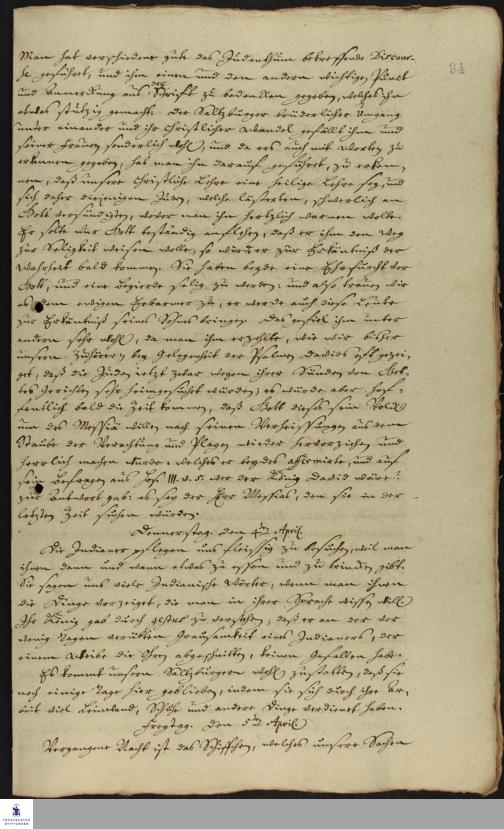 Man hat verschiedene gute das Judenthum betreffende Discour-
se geführet, und ihm einen und den andern wichtigen Punct
und Anmerckung aus der Schrifft zu bedencken gegeben, welches ihn
etwas stutzig gemacht. Der Saltzburger brüderlicher Umgang
unter einander und ihr Christlicher Wandel gefällt ihm und
seiner Frauen sonderlich wohl, und da er es auch mit Worten zu
erkennen gegeben, hat man ihn darauf geführet, zu erken-
nen, daß unsere Christliche Lehre eine heilige Lehre sey, und
sich daher diejenigen Juden, welche lästerten, schwerlich an
Gott versündigten, wovor man ihn hertzlich warnen wolte.
Er solte nur Gott beständig anflehen, daß er ihm den Weg
zur Seligkeit weisen wolle, so würde er zur Erkäntniß der
Wahrheit bald kommen. Sie haben beyde eine Ehrfurcht vor
Gott, und eine Begierde selig zu werden; und also trauen wir
es dem ewigen Erbarmer zu, er werde auch diese Leute
zur Erkäntniß seines Sohns bringen. Das gefiel ihm unter
andern sehr wohl, da man ihm erzehlte, wie wir bisher
unsern Zuhörern bey Gelegenheit der Psalmen Davids offt gezei-
get, daß die Juden jetzt zwar wegen ihrer Sünden von Got-
tes Gerichten sehr heimgesuchet würden; es würde aber hof-
fentlich bald die Zeit kommen, daß Gott dieses sein Volck
um des Messiä willen nach seinen Verheissungen aus dem
Staube der Verachtung und Plagen wieder hervorziehen und
herrlich machen würde, welches er beydes affirmirte, und auf
sein Befragen aus Hos. III. v. 5. wer der König David wäre?
zur Antwort gab: es sey der Herr Messias, den sie in der
letzten Zeit suchen würden.
Donnerstag. den 4ten April.
Die Indianer pflegen uns fleissig zu besuchen, weil man
ihnen dann und wann etwas zu essen und zu trincken gibt.
Sie sagen uns viele Indianische Wörter, wenn man ihnen
die Dinge vorzeiget, die man in ihrer Sprache wissen will.
Ihr König gab durch gestus zu verstehen, daß er an der vor
wenig Tagen verübten Grausamkeit eines Indianers, der
einem Weibe die Ohren abgeschnitten, keinen Gefallen habe.
Es kommt unsern Saltzburgern wohl zustatten, daß sie
noch einige Tage hier geblieben, indem sie sich durch ihre Ar-
beit viel Leinwand, Schuhe und andere Dinge verdienet haben.
Freytag. den 5ten April.
Vergangene Nacht ist das Schiffchen, welches unsere Sachen
94
FRANCKESCHE STIFTUNGEN